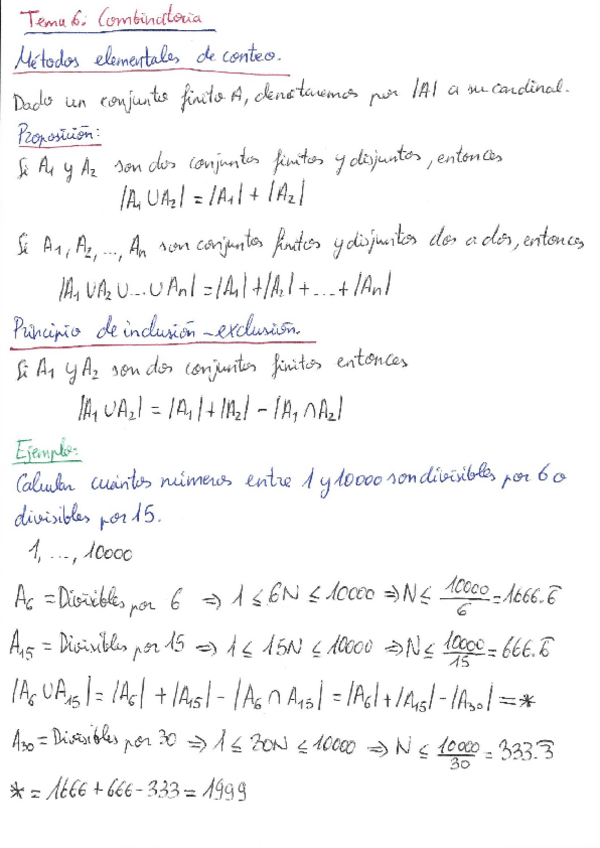 Tema 6: Combinatoria
Métodos elementales de conteo.
Dado un conjunto finito A, denotaremos por |A| a su cardinal.
Proposición:
Si A₁ y A₂ son dos conjuntos finitos y disjuntos, entonces
|A₁ ∪ A₂| = |A₁| + |A₂|
Si A₁, A₂, ..., Aₙ son conjuntos finitos y disjuntos dos a dos, entonces
|A₁ ∪ A₂ ∪ ... ∪ Aₙ| = |A₁| + |A₂| + ... + |Aₙ|
Principio de inclusión-exclusión.
Si A₁ y A₂ son dos conjuntos finitos entonces
|A₁ ∪ A₂| = |A₁| + |A₂| - |A₁ ∩ A₂|
Ejemplo:
Calcular cuántos números entre 1 y 10000 son divisibles por 6 o
divisibles por 15.
1, ..., 10000
A₆ = Divisibles por 6 ⇒ 1 ≤ 6N ≤ 10000 ⇒ N ≤ 10000/6 = 1666.6̅
A₁₅ = Divisibles por 15 ⇒ 1 ≤ 15N ≤ 10000 ⇒ N ≤ 10000/15 = 666.6̅
|A₆ ∪ A₁₅| = |A₆| + |A₁₅| - |A₆ ∩ A₁₅| = |A₆| + |A₁₅| - |A₃₀| = *
A₃₀ = Divisibles por 30 ⇒ 1 ≤ 30N ≤ 10000 ⇒ N ≤ 10000/30 = 333.3̅
* = 1666 + 666 - 333 = 1999